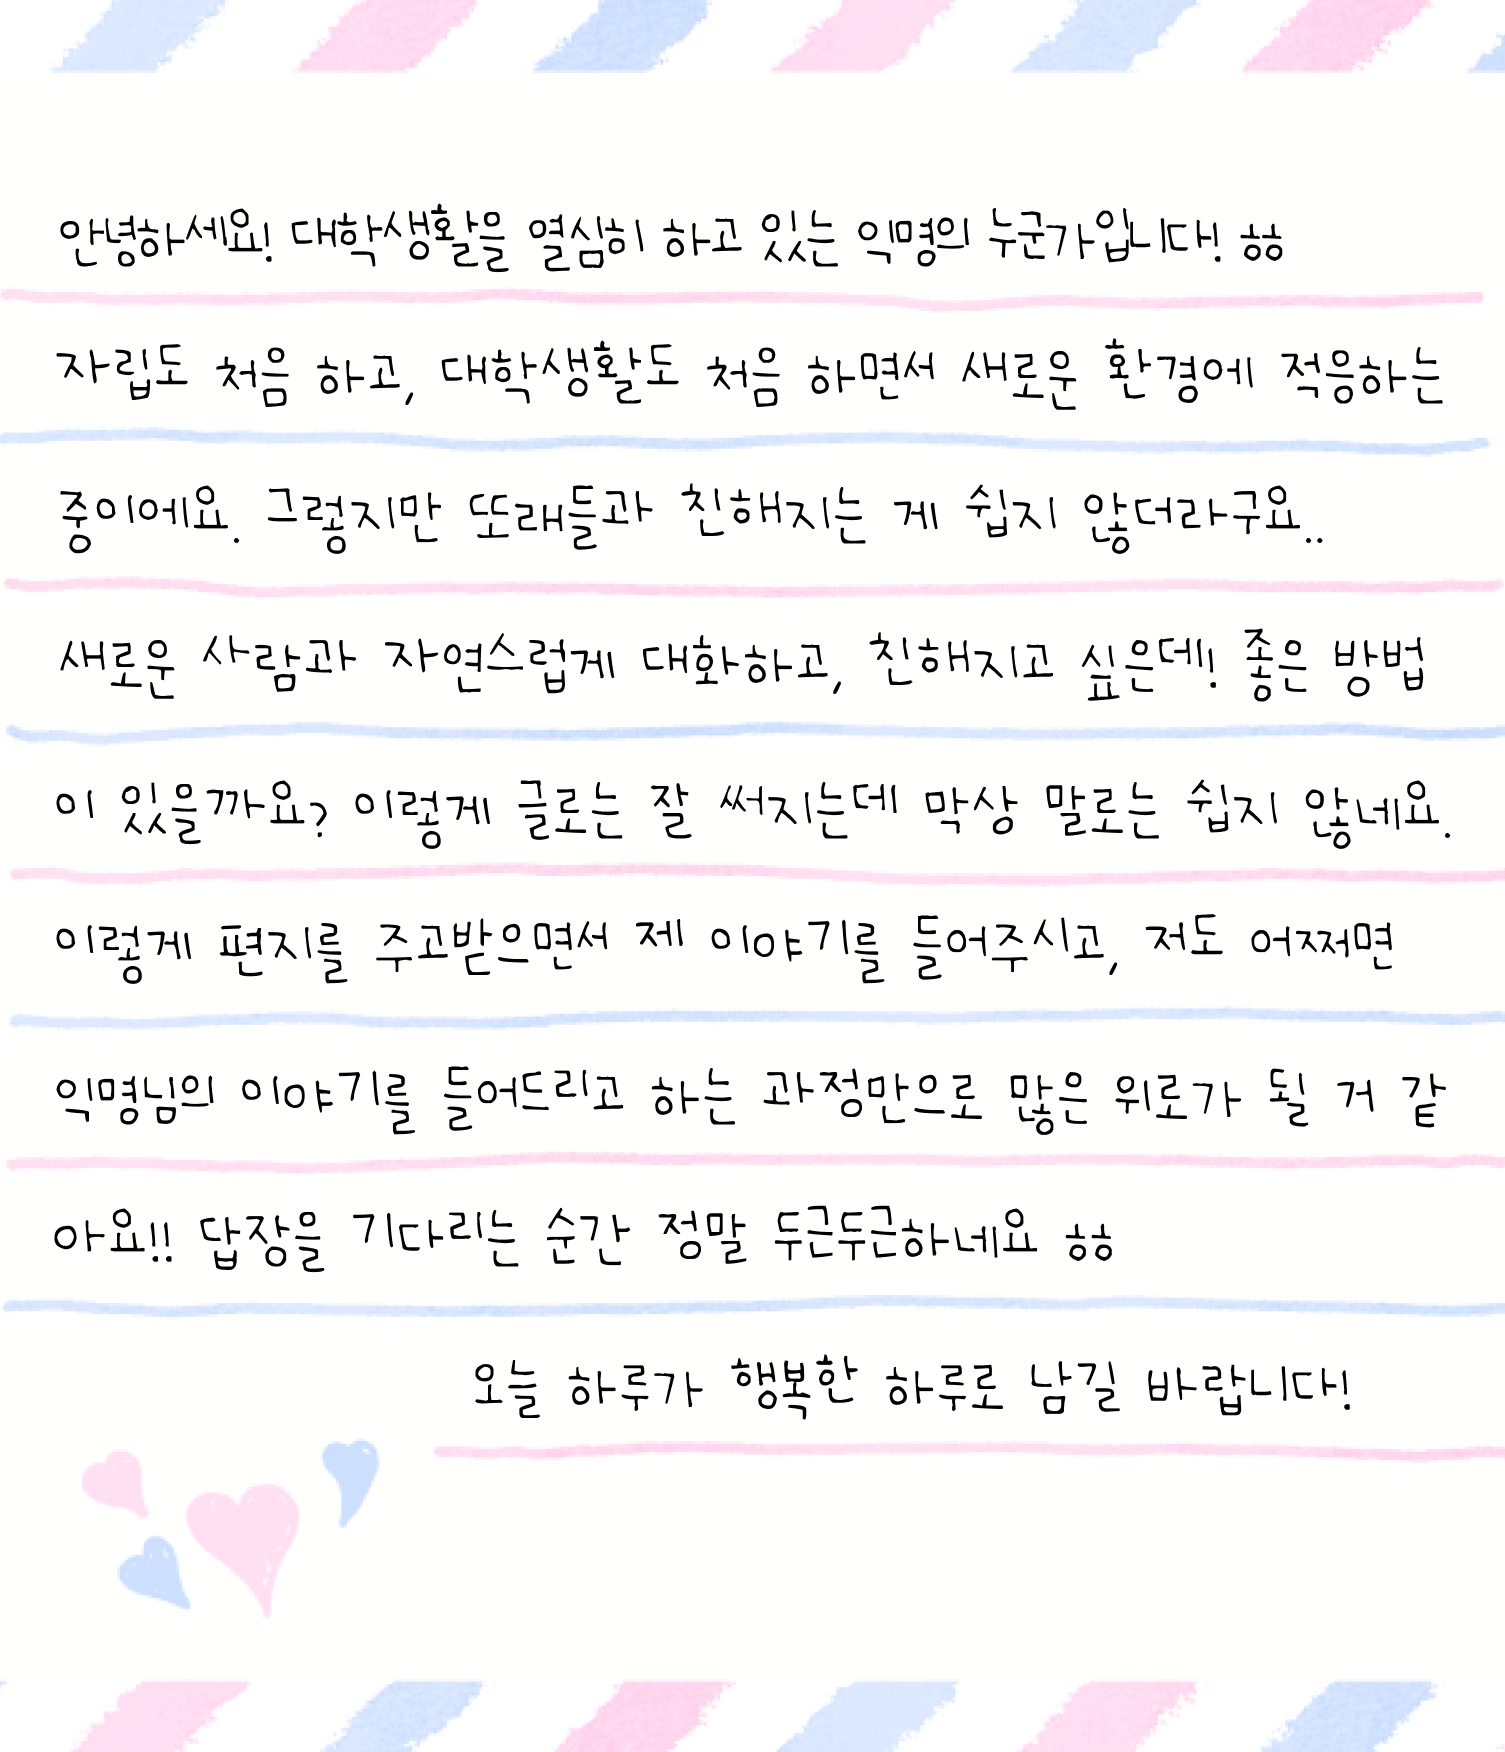 안녕하세요! 대학생활을 열심히 하고 있는 익명의 누군가입니다! ㅎㅎ
자립도 처음 하고, 대학생활도 처음 하면서 새로운 환경에 적응하는
중이에요. 그렇지만 또래들과 친해지는 게 쉽지 않더라구요..
새로운 사람과 자연스럽게 대화하고, 친해지고 싶은데! 좋은 방법
이 있을까요? 이렇게 글로는 잘 써지는데 막상 말로는 쉽지 않네요.
이렇게 편지를 주고받으면서 제 이야기를 들어주시고, 저도 어쩌면
익명님의 이야기를 들어드리고 하는 과정만으로 많은 위로가 될 거 같
아요!! 답장을 기다리는 순간 정말 두근두근하네요 ㅎㅎ
오늘 하루가 행복한 하루로 남길 바랍니다!